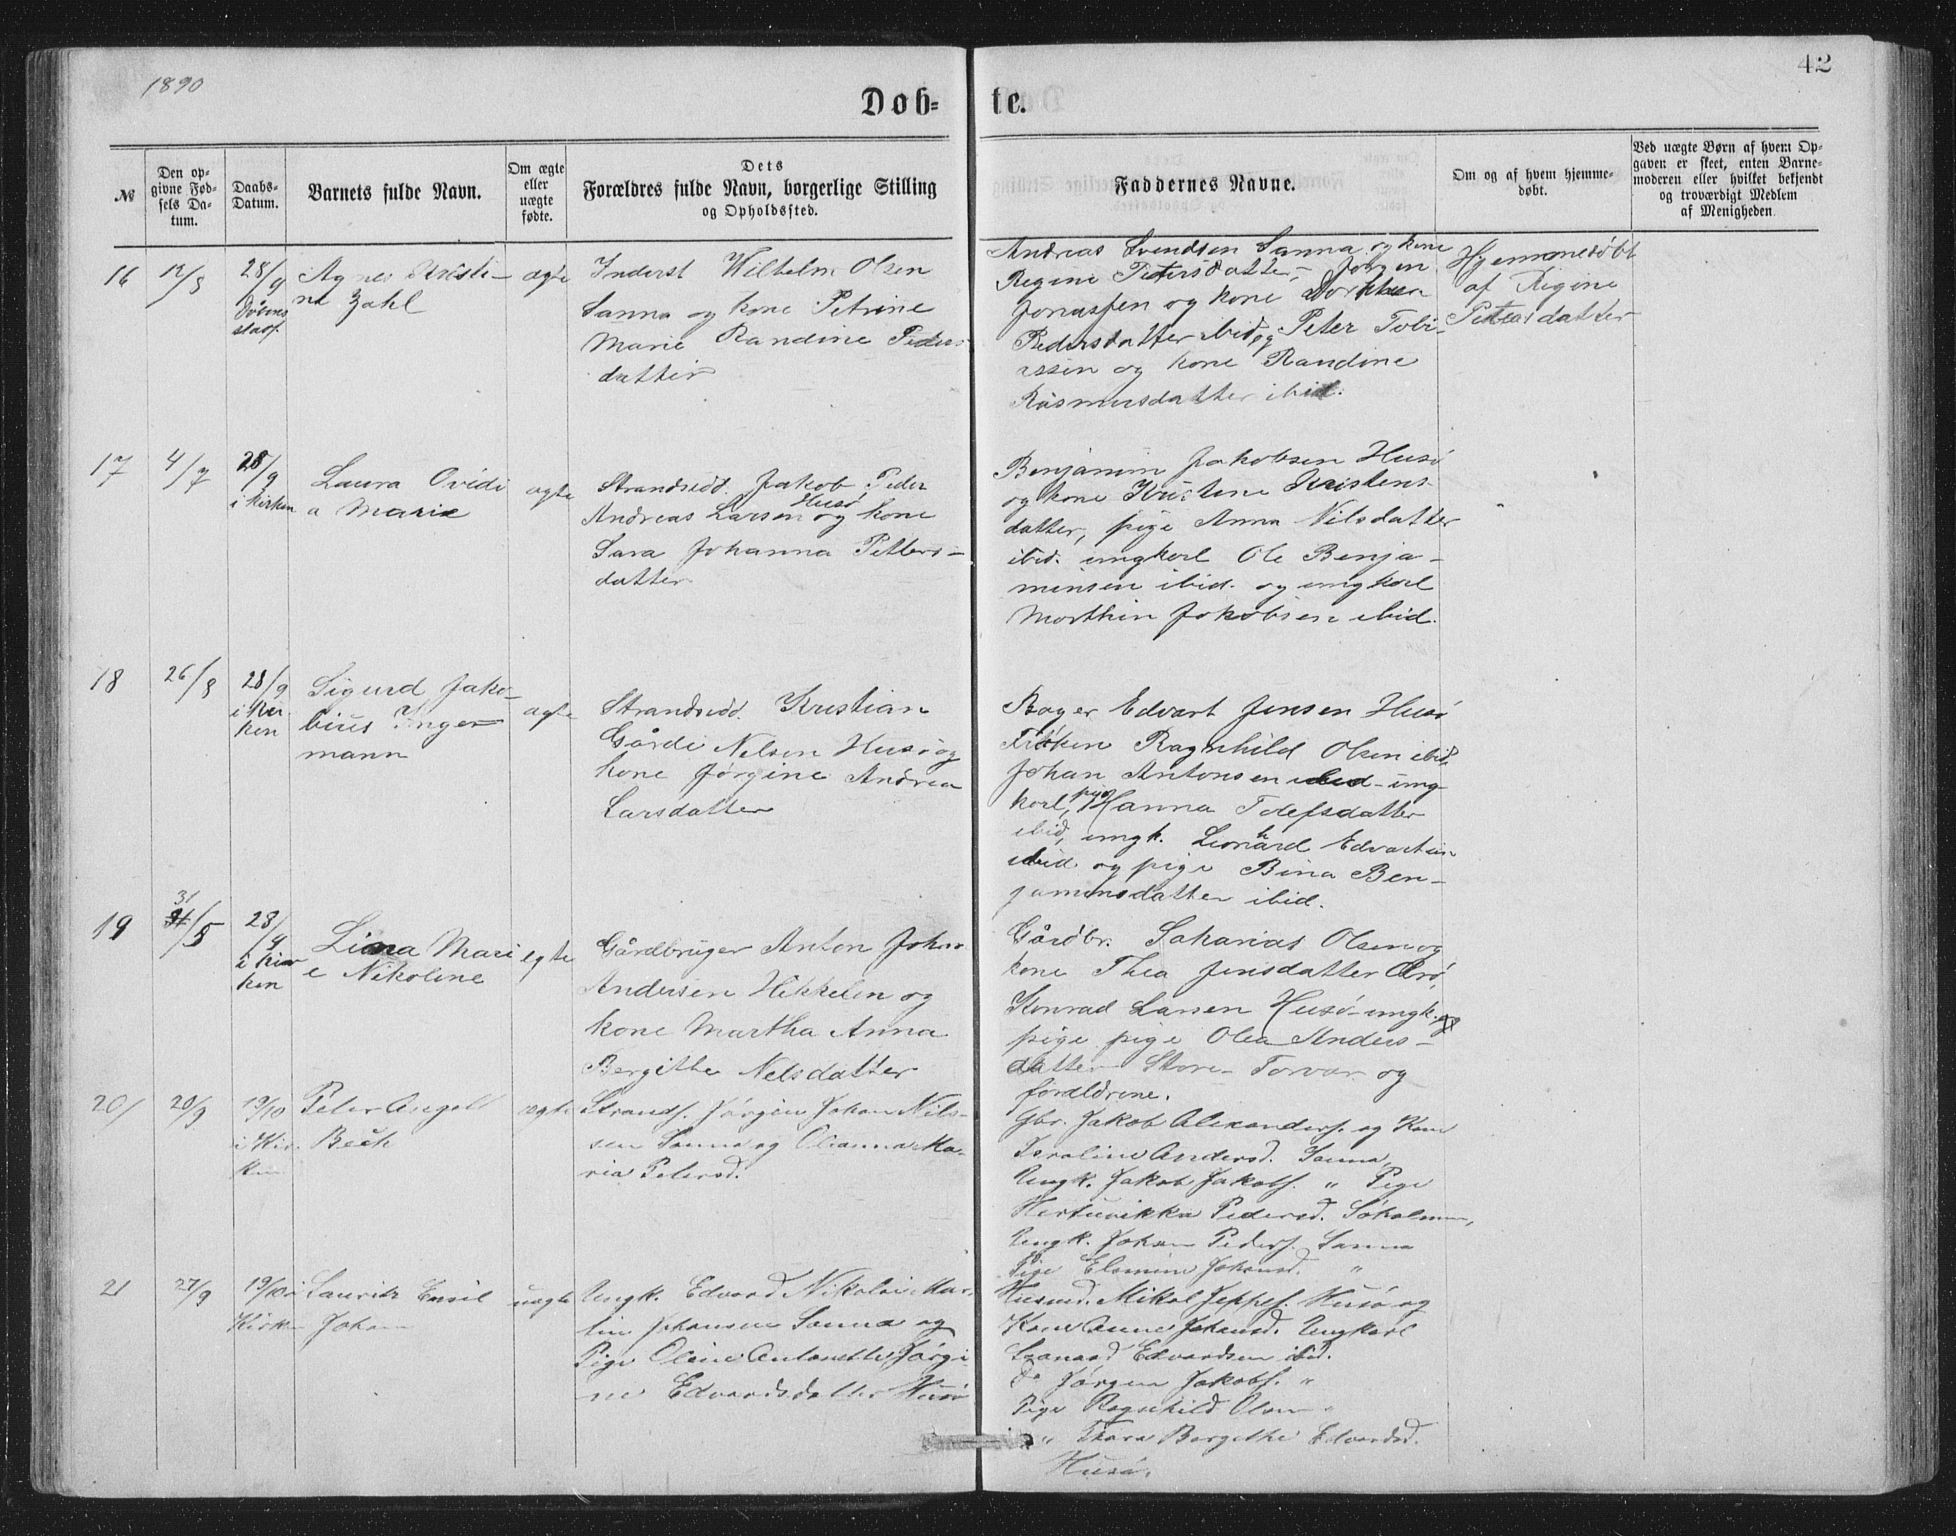 1890
42
Døb-
te.
№
Den op-
givne Fød-
sels Da-
tum.
Daabs-
Datum.
Barnets fulde Navn.
Om ægte
eller
uægte
fødte.
Dets
Forældres fulde Navn, borgerlige Stilling
og Opholdssted.
Faddernes Navne.
Om og af hvem hjemme-
døbt.
Ved uægte Børn af hvem Op-
gaven er skeet, enten Barne-
moderen eller hvilket bekjendt
og troværdigt Medlem
af Menigheden.
16
12/8
28/9
Agnes Kristi-
ne Zahl
ægte
Inderst Wilhelm Olsen
Sanna og kone Petrine
Marie Randine Peders
datter
Andreas Svendsen Sanna og kone
Regine Petersdatter, Jørgen
Jonassen og kone Dorthea
Pedersdatter ibid og Peter Tobi-
assen og kone Randine
Rasmusdatter ibid.
Hjemmedøbt
af Regine
Petersdatter
17
4/7
28/9
i kirken
Laura Ovidi
a Marie
ægte
Strandsidd. Jakob Peder
Andreas Larsen Husø og kone
Sara Johanna Petters-
datter
Benjamin Jakobsen Husø
og kone Kristine Kristens-
datter, pige Anna Nilsdatter
ibid. ungkarl Ole Benja-
minsen ibid. og ungkarl
Morthin Jakobsen ibid.
18
26/8
28/9
i kir-
ken
Sigurd Jako-
bius Inger
mann
ægte
Strandsidd. Kristian
Gårdi Nelsen Husø og
kone Jørgine Andrea
Larsdatter
Bager Edvart Jensen Husø
Frøken Ragnhild Olsen ibid
Johan Antonsen ibid - ung
karl, pige Hanna Tolefsdatter
ibid, ungk. Leonhard Edvartsen
ibid og pige Bina Ben-
jaminsdatter ibid.
19
31/5
28/9
i kir
ken
Lina Mari
e Nikoline
egte
Gårdbruger Anton Johan
Andersen Hikkelen og
kone Martha Anna
Bergithe Nelsdatter
Gårdbr. Sakarias Olsen og
kone Thea Jensdatter
Konrad Larsen Husø - ungk. og
pige pige Olea Anders-
datter Store-Torvær og
forældrene.
20
20/9
19/10
i Kir-
ken
Peter Angell
Beck
ægte
Strands. Jørgen Johan Nils-
sen Sanna og Olianna Ma-
ria Petersd.
Gbr. Jakob Alexanders. og Kone
Andersd. Sanna,
Ungk. Jakob Jakobs. " Pige
Pedersd. Søholmen,
Ungk. Johan Peders. Sanna
Pige Johansd. "
21
27/9
19/10 i
Kirken
Lauritz Emil
Johan
uægte
Ungk. Edvard Nikolai Mar-
tin Johansen Sanna og
Pige Oline Antonette Jørgi
ne Edvardsdatter Husø
Husmd. Mikal Jeppes. Husø og
Kone Anne Johansd. Ungkarl
Leonard Edvardsen ibid.
do Jørgen Jakobs. "
Pige Ragnhild Olsen "
" Thora Bergethe Edvardsd.
Husø.